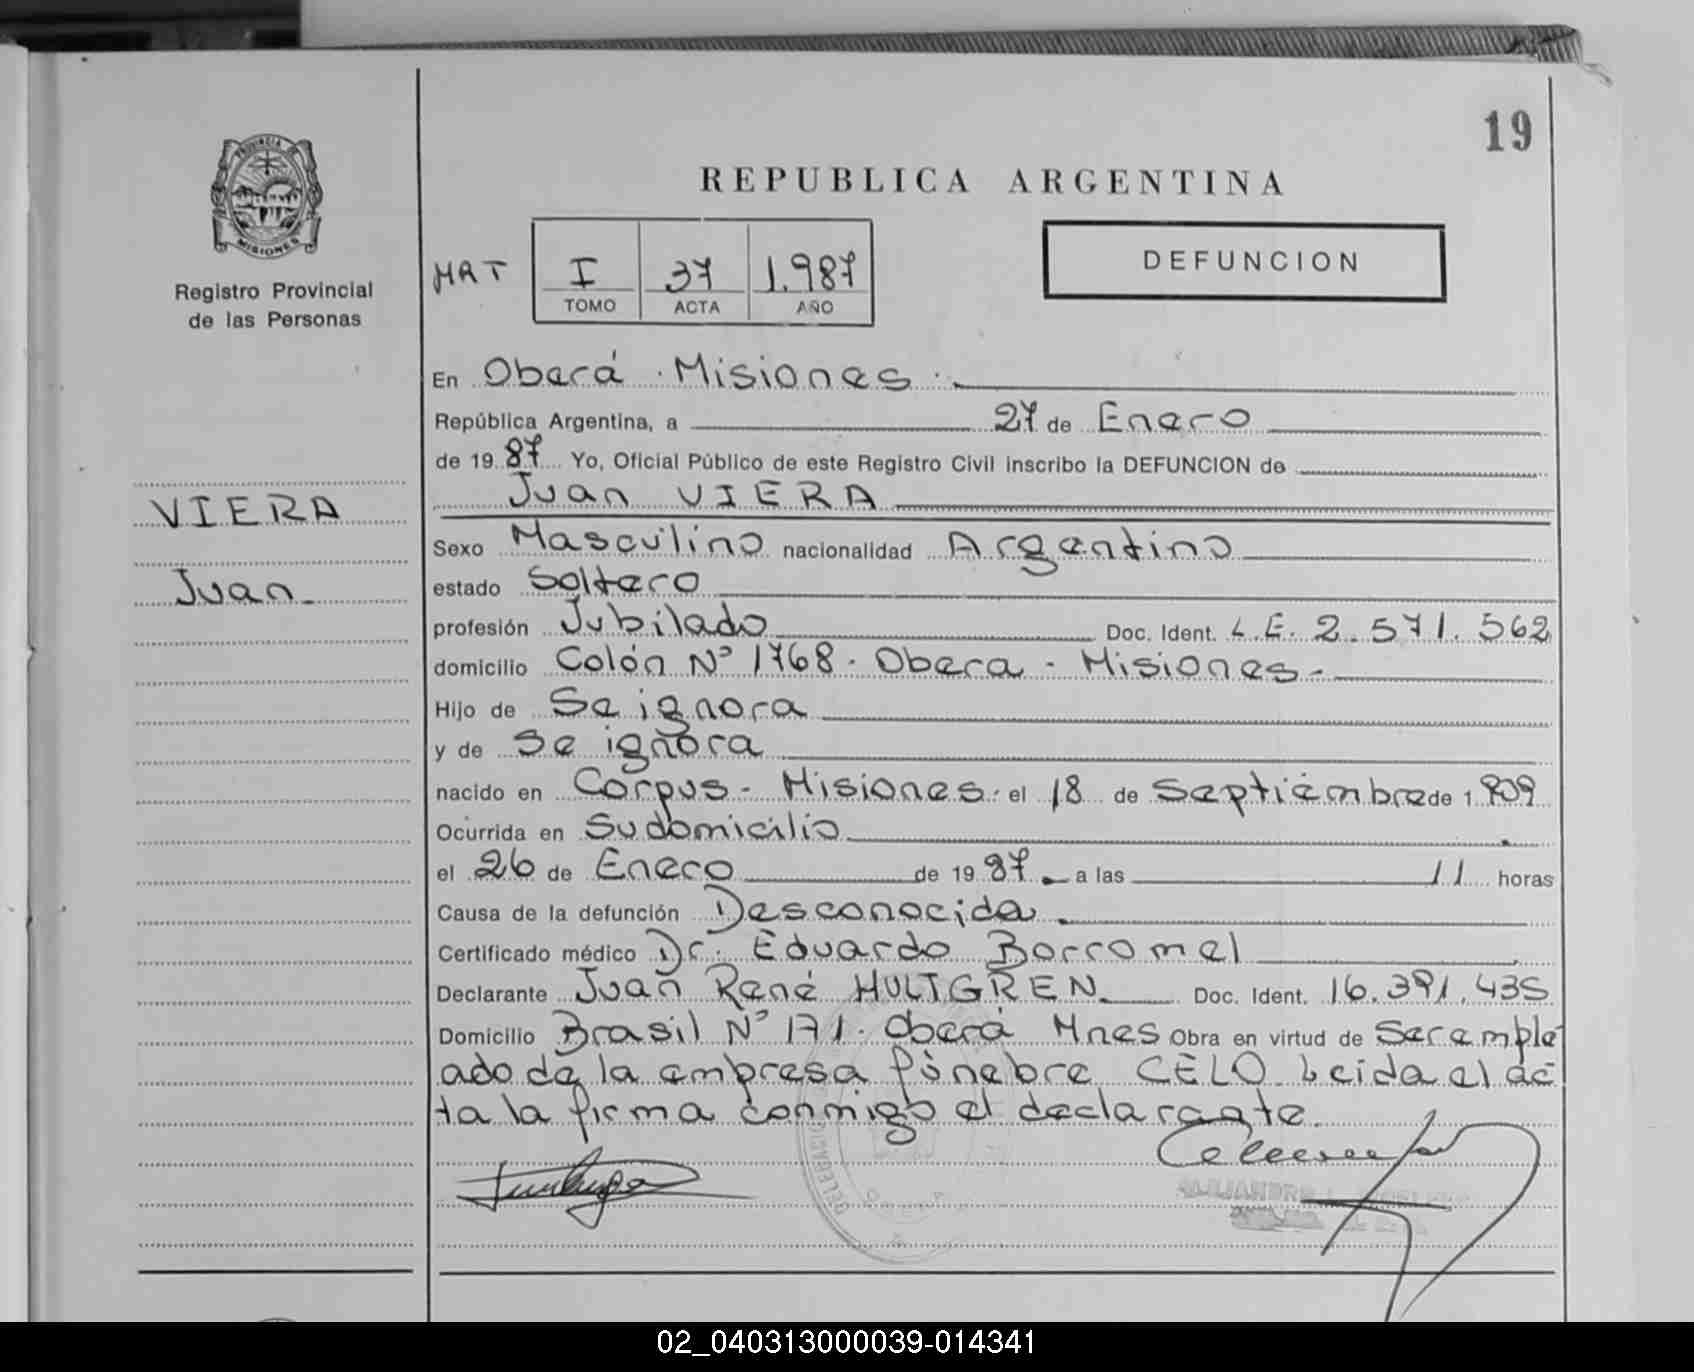 19
PROVINCIA DE
MISIONES
Registro Provincial
de las Personas
REPUBLICA ARGENTINA
MRT I 37 1.987
TOMO ACTA AÑO
DEFUNCION
En Oberá . Misiones .
República Argentina, a 27 de Enero
de 19 87 Yo, Oficial Público de este Registro Civil inscribo la DEFUNCION de
Juan VIERA
VIERA
Juan
Sexo Masculino nacionalidad Argentino
estado Soltero
profesión Jubilado Doc. Ident. L.E. 2.571.562
domicilio Colón Nº 1768 . Obera - Misiones -
Hijo de Se ignora
y de Se ignora
nacido en Corpus - Misiones . el 18 de Septiembre de 1.909
Ocurrida en Su domicilio
el 26 de Enero de 19 87 a las 11 horas
Causa de la defunción Desconocida
Certificado médico Dr. Eduardo Borromel
Declarante Juan René HULTGREN Doc. Ident. 16.391.435
Domicilio Brasil Nº 171 . Oberá Mnes Obra en virtud de Ser emple
ado de la empresa fúnebre CELO. Leida el ac
ta la firma conmigo el declarante.
02_040313000039-014341